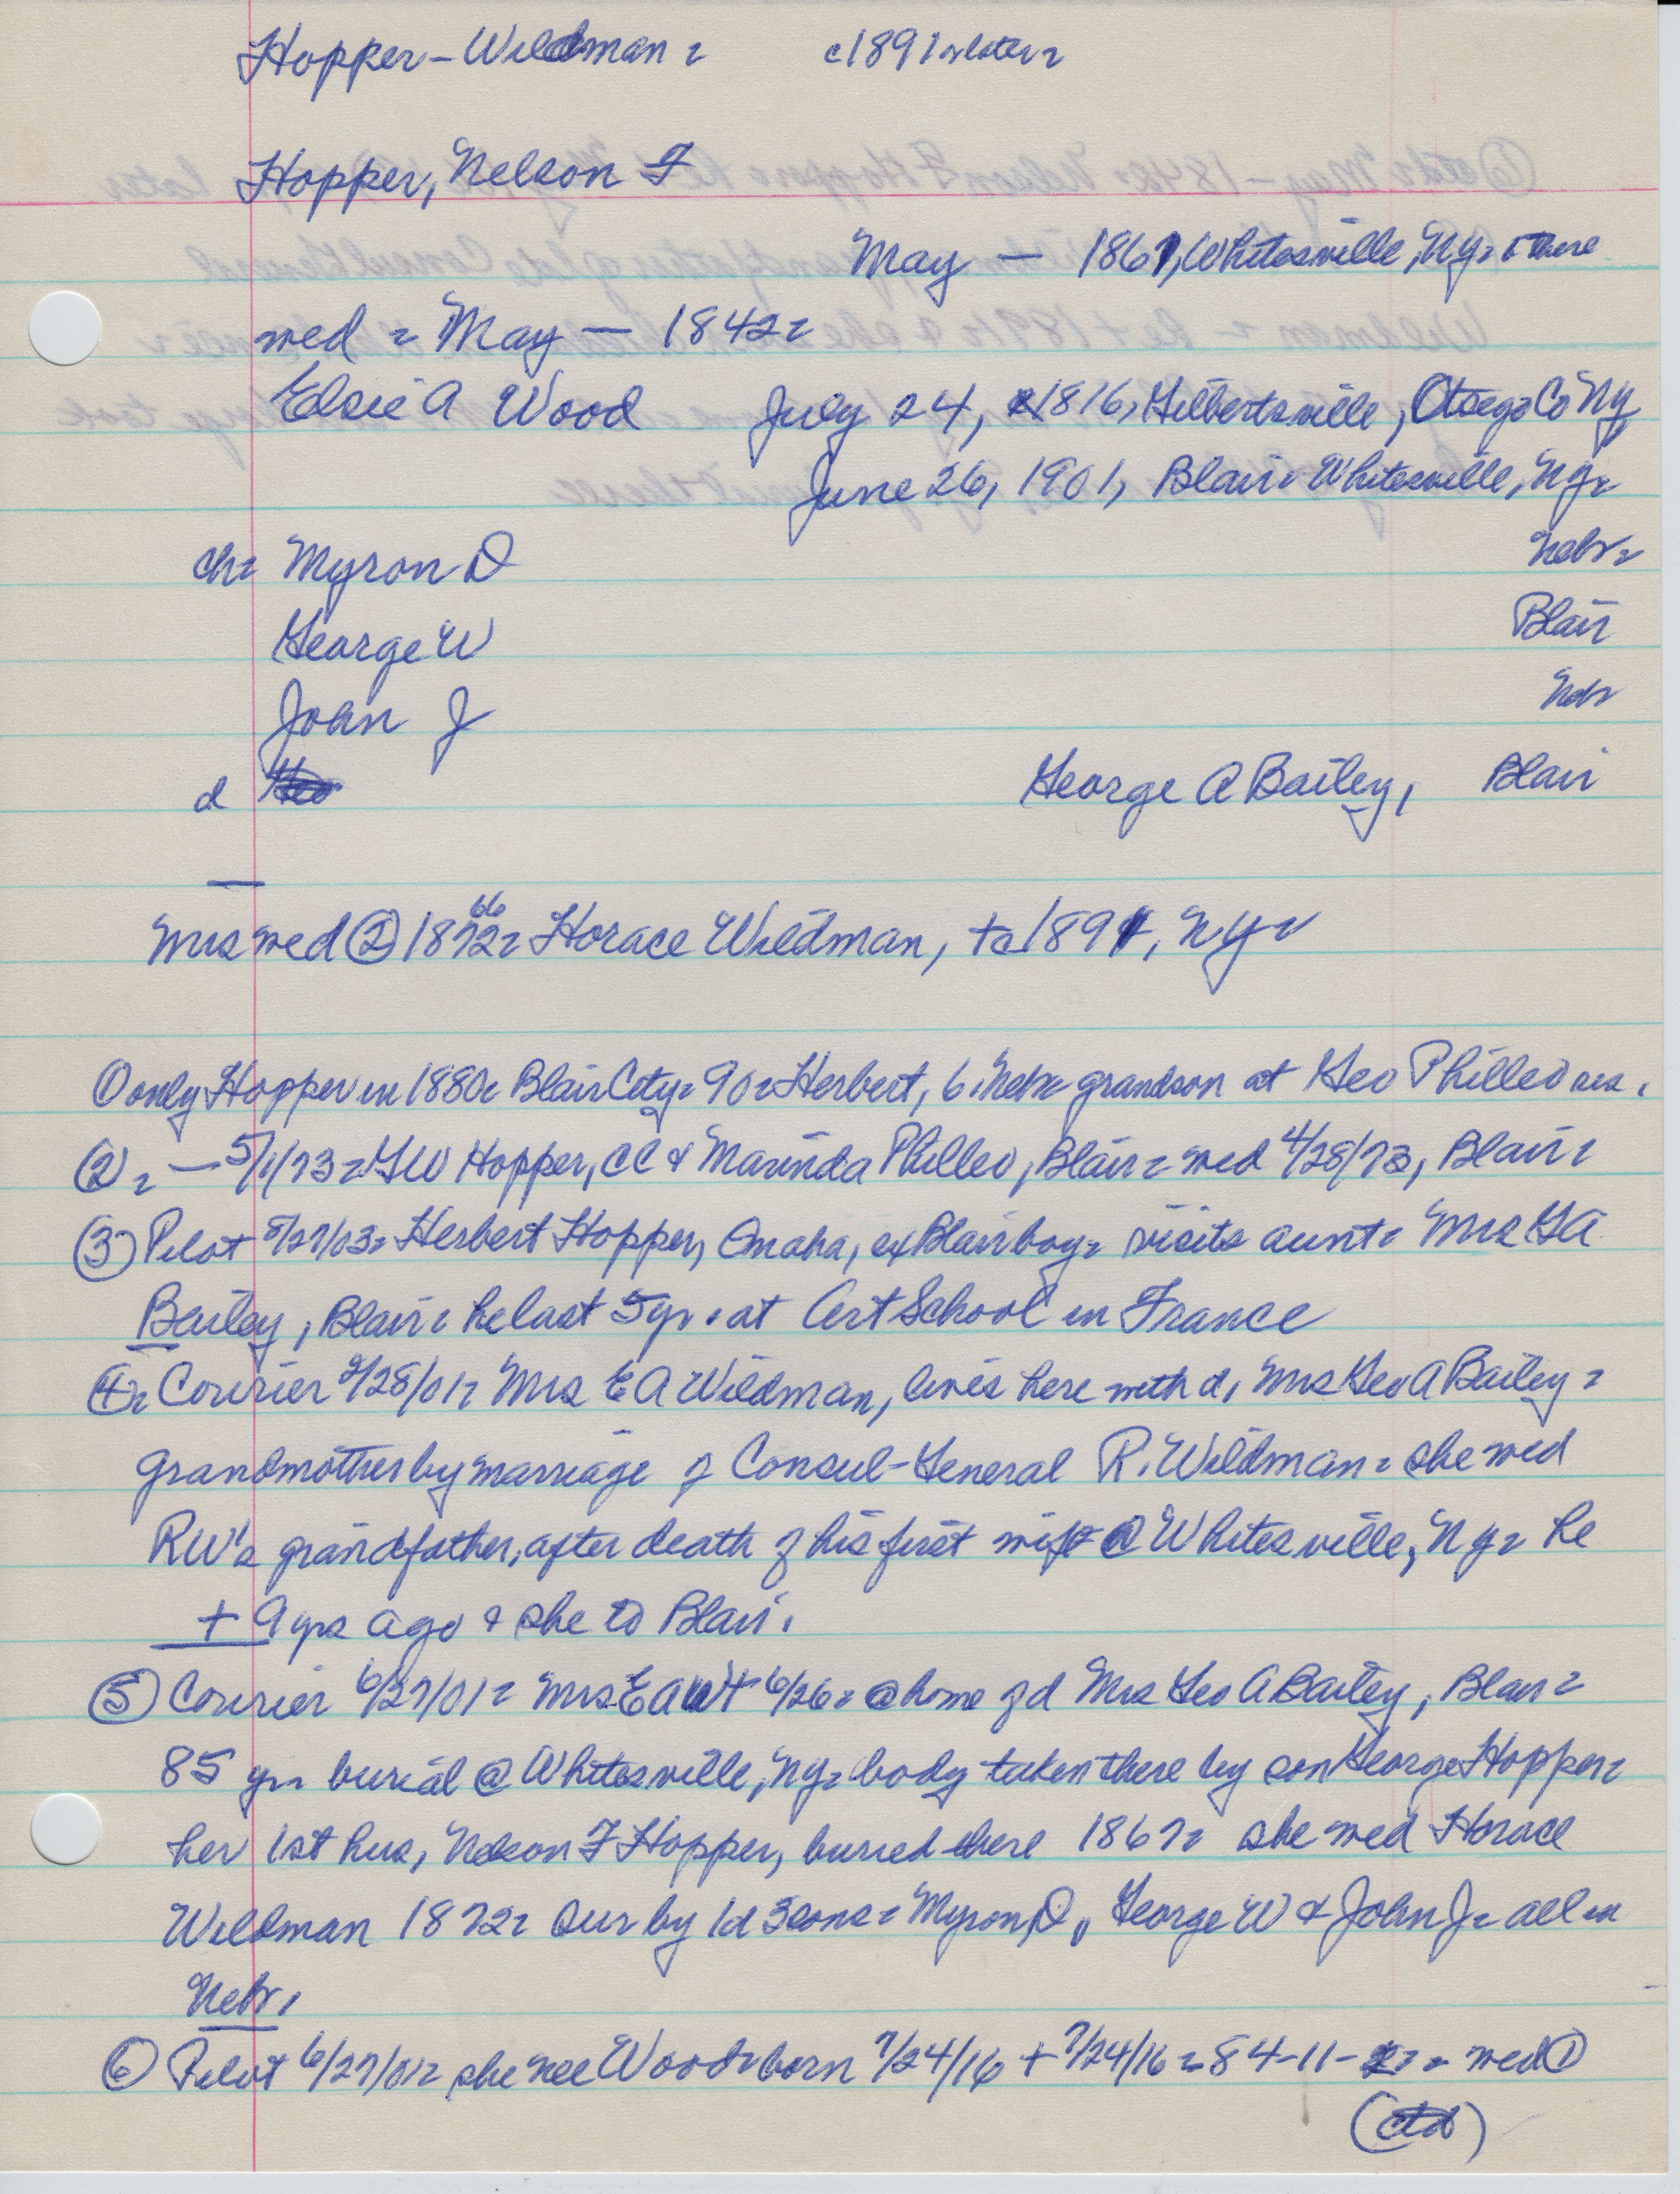 Hopper-Wildman = c1891 or later =
Hopper, Nelson F
May — 1867, Whitesville, Ny = there
wed = May — 1842 =
Elsie A Wood July 24, 1816, Gilbertsville, Otsego Co Ny
June 26, 1901, Blair = Whitesville, Ny =
ch = Myron D Nebr =
George W Blair
John J Nebr
d George A Bailey, Blair
Mrs wed ② 1872 = 66 Horace Wildman, + c1891, NY =
① only Hopper in 1880 = Blair City = 90 = Herbert, 6, Nebr = grandson at Geo Philleo res.
② = — 5/1/73 = GW Hopper, CC & Marinda Philleo, Blair = wed 4/28/73, Blair =
③ Pilot 8/27/03 = Herbert Hopper, Omaha, ex Blair boy = visits aunt = Mrs GA
Bailey, Blair = he last 5 yr. at Art School in France
④ = Courier 2/28/01 = Mrs E A Wildman, lives here with d, Mrs Geo A Bailey =
grandmother by marriage of Consul-General R. Wildman = she wed
RW's grandfather, after death of his first wife @ Whitesville, Ny = he
+ 9 yrs ago & she to Blair.
⑤ Courier 6/27/01 = Mrs E A W + 6/26 = @ home of d Mrs Geo A Bailey, Blair =
85 yrs burial @ Whitesville, Ny = body taken there by son George Hopper =
her 1st hus, Nelson F Hopper, buried there 1867 = she wed Horace
Wildman 1872 = Sur by 1d 3 sons = Myron D, George W & John J = all in
Nebr.
⑥ Pilot 6/27/01 = she nee Wood = born 7/24/16 + 7/24/16 = 84-11-2 = wed ①
(ctd)